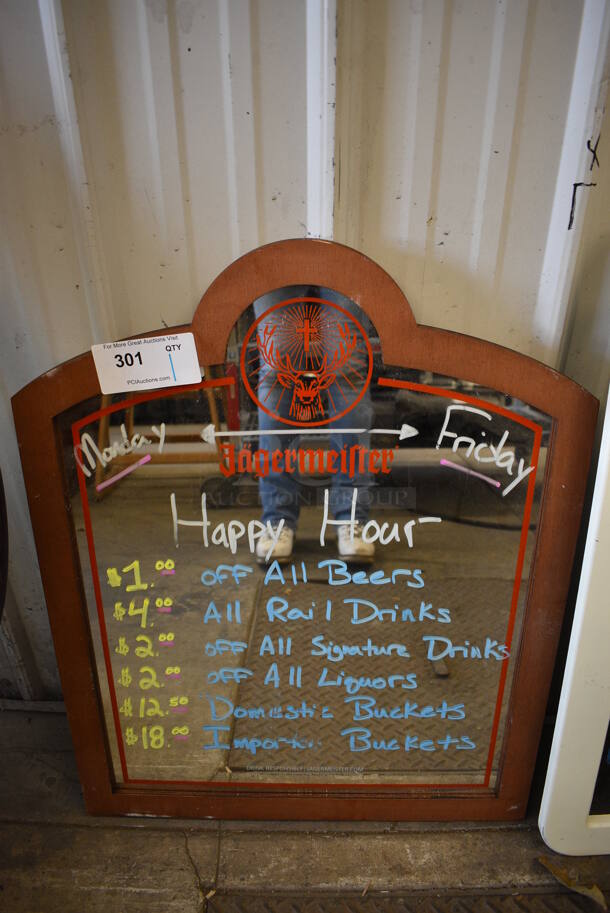 For More Great Auctions Visit
301 QTY 1
PCIAuctions.com
Monday Friday
Jägermeister
AUCTION GROUP
Happy Hour
$1.00 off All Beers
$4.00 All Rail Drinks
$2.00 off All Signature Drinks
$2.00 off All Liquors
$12.50 Domestic Buckets
$18.00 Import Buckets
DRINK RESPONSIBLY JAGERMEISTER.COM